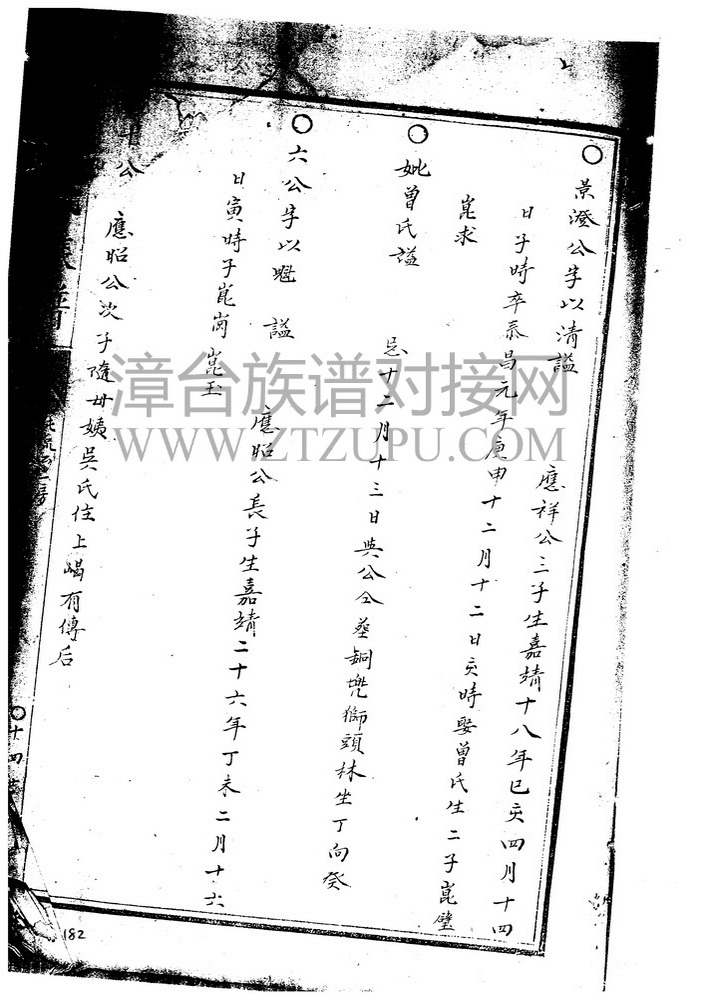 景澄公字以清諡
應祥公三子生嘉靖十八年己亥四月十四
日子時卒泰昌元年庚申十二月十二日亥時娶曾氏生二子崑璧
崑求
妣曾氏諡
忌十二月十三日與公仝葬銅壠獅頭林坐丁向癸
六公字以魁 諡
應昭公長子生嘉靖二十六年丁未二月十六
日寅時子崑崗崑玉
公
應昭公次子隨母姨吳氏住上嵑有傳后
十四
182
漳台族谱对接网
WWW.ZTZUPU.COM